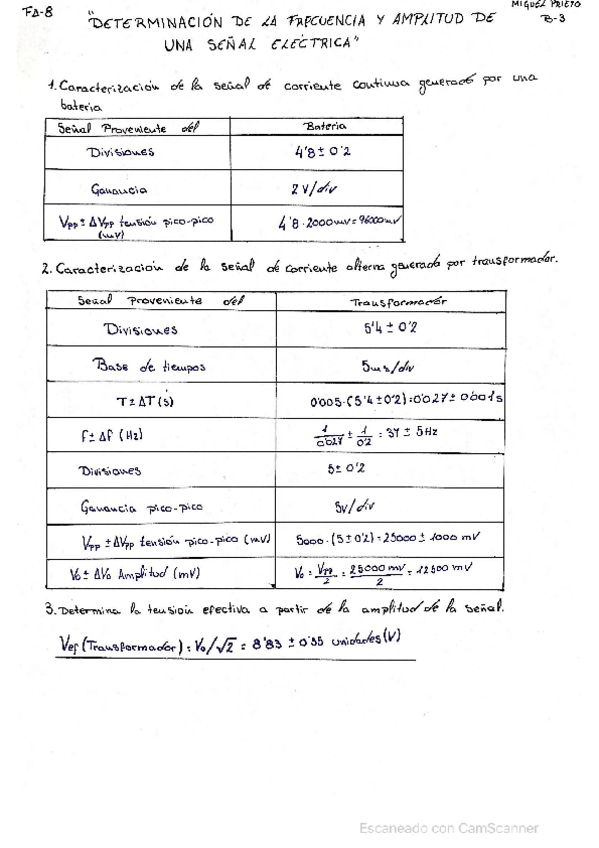 FA-8
MIGUEL PRIETO
B-3
"DETERMINACIÓN DE LA FRECUENCIA Y AMPLITUD DE
UNA SEÑAL ELÉCTRICA"
1. Caracterización de la señal de corriente continua generada por una
batería
Señal Proveniente del Batería
Divisiones 4'8 ± 0'2
Ganancia 2 V/div
Vpp ± ΔVpp tensión pico-pico (mV) 4'8 · 2000mV = 96000mV
2. Caracterización de la señal de corriente alterna generada por transformador.
Señal Proveniente del Transformador
Divisiones 5'4 ± 0'2
Base de tiempos 5ms/div
T ± ΔT (s) 0'005·(5'4 ± 0'2) = 0'027 ± 0'001s
f ± Δf (Hz) 1/0'027 ± 1/0'2 = 37 ± 5Hz
Divisiones 5 ± 0'2
Ganancia pico-pico 5V/div
Vpp ± ΔVpp tensión pico-pico (mV) 5000·(5 ± 0'2) = 25000 ± 1000 mV
V0 ± ΔV0 Amplitud (mV) V0 = Vpp/2 = 25000 mV/2 = 12500 mV
3. Determina la tensión efectiva a partir de la amplitud de la señal.
Vef (Transformador) = V0/√2 = 8'83 ± 0'35 unidades (V)
Escaneado con CamScanner